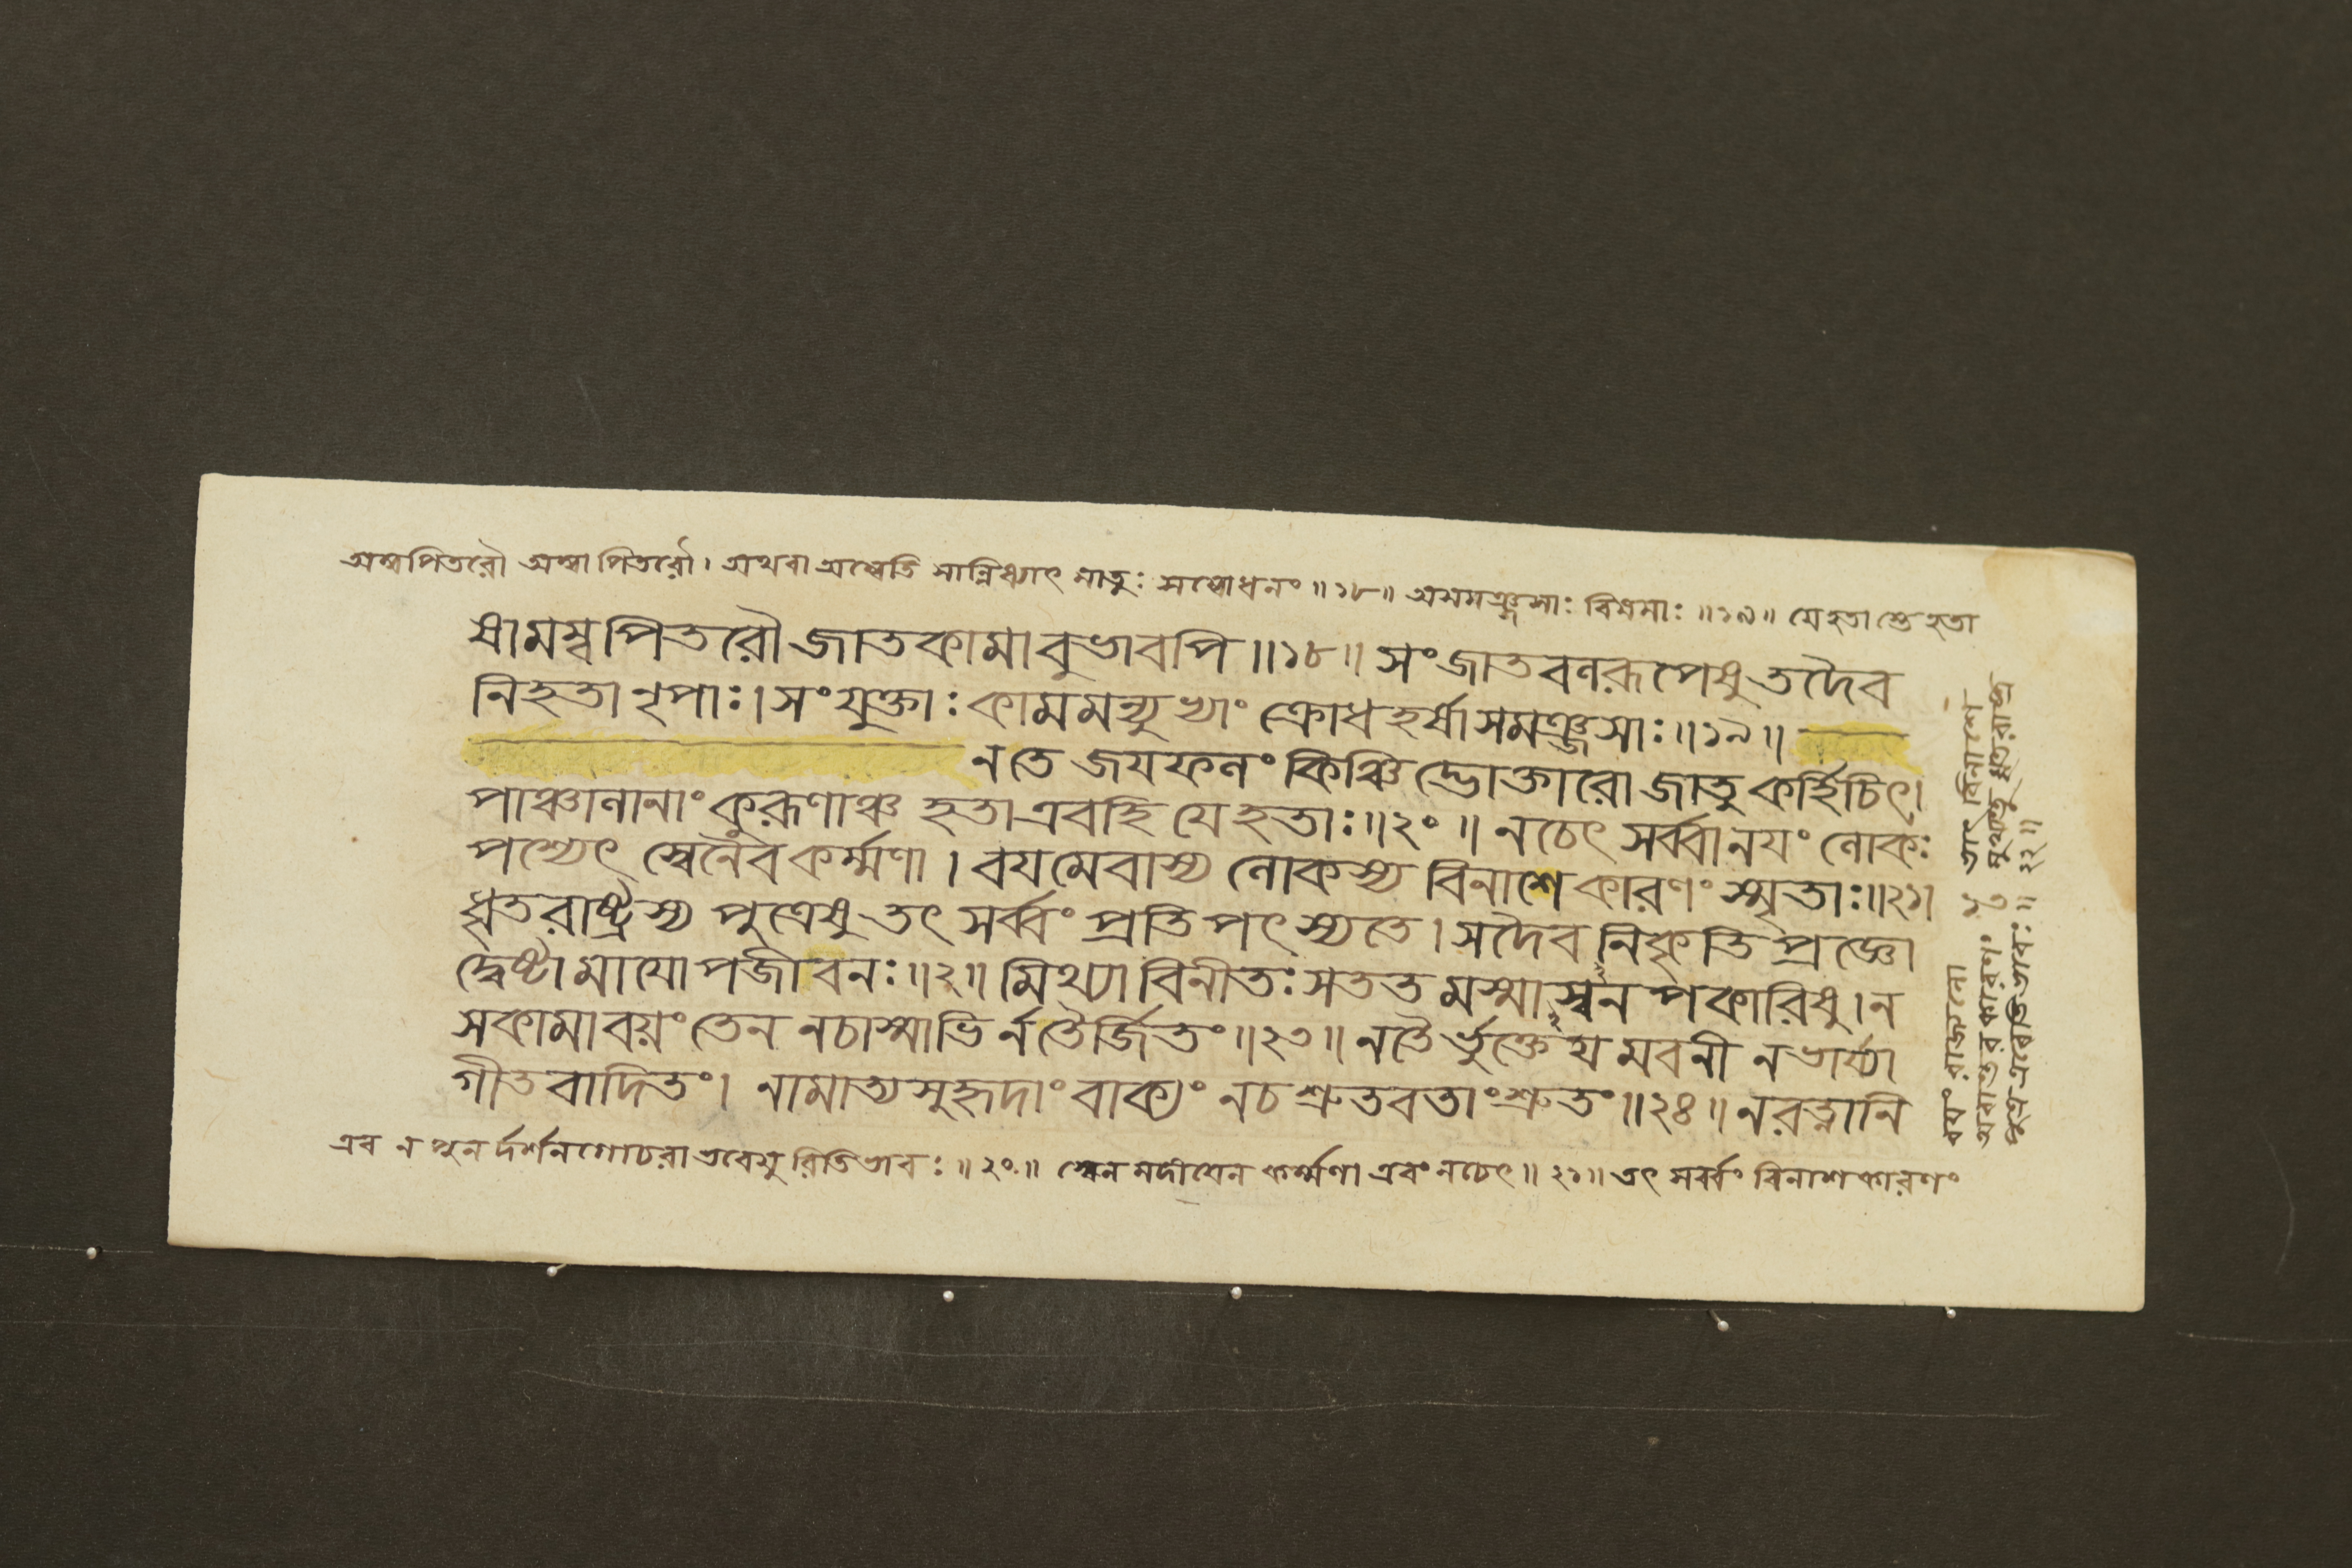 অম্বপিতরৌ অম্বা পিতরৌ। অথবা অম্বেতি সান্নিধ্যাৎ মাতুঃ সম্বোধনং ॥১৮॥ অসমঞ্জসাঃ বিষমাঃ ॥১৯॥ যে হতাস্তে হতা
ষামম্ব পিতরৌ জাতকামাবুভাবপি ॥১৮॥ সংজাতবলরূপেষু তদৈব
নিহতা নৃপাঃ। সংযুক্তাঃ কামমন্যুভ্যাং ক্রোধহর্ষাসমঞ্জসাঃ ॥১৯॥
ন তে জয়ফলং কিঞ্চিদ্ভোক্তারো জাতু কর্হিচিৎ।
পাঞ্চালানাং কুরূণাঞ্চ হতা এব হি যে হতাঃ ॥২০॥ ন চেৎ সর্ব্বানয়ং লোকঃ
পশ্যেৎ স্বেনৈব কর্ম্মণা। বয়মেবাস্য লোকস্য বিনাশে কারণং স্মৃতাঃ ॥২১।
ধৃতরাষ্ট্রস্য পুত্রেষু তৎ সর্ব্বং প্রতিপৎস্যতে। সদৈব নিকৃতিপ্রজ্ঞো
দ্বেষ্টা মায়োপজীবনঃ ॥২॥ মিথ্যাবিনীতঃ সততমস্মাস্বনপকারিষু। ন
সকামা বয়ং তেন নচাস্মাভির্ন তৈর্জিতং ॥২৩॥ ন তৈর্ভুক্তেয়মবনী ন ভার্য্যা
গীতবাদিতং। নামাত্যসুহৃদাং বাক্যং ন চ শ্রুতবতাং শ্রুতং ॥২৪॥ ন রত্নানি
এব ন পুনর্দর্শনগোচরা ভবেযুরিতিভাবঃ ॥২০॥ স্বেন মদীয়েন কর্ম্মণা এবং নচেৎ ॥২১॥ তৎ সর্ব্বং বিনাশকারণং
বয়ং রাজানো তাং বিনাশে
অবান্তরকারণং ধৃতরাষ্ট্র
পুত্র এবেতিভাবঃ ॥ ২২॥